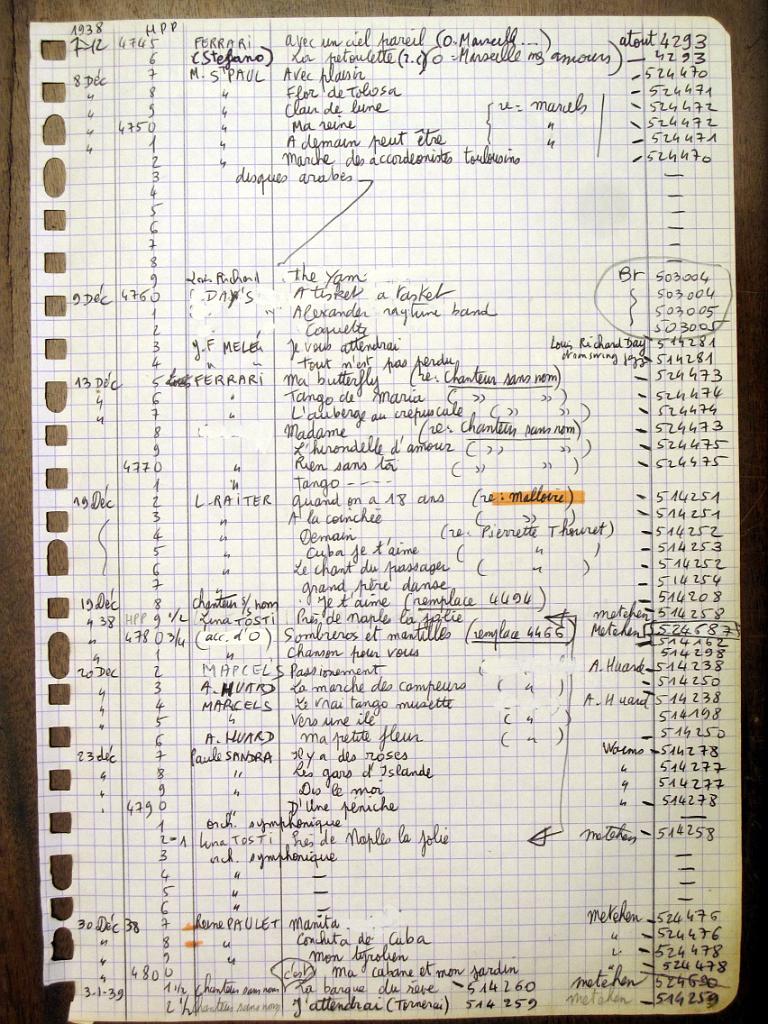 1938 HPP
7-12 4745 FERRARI avec un ciel pareil (O. Marseille ...) atout 4293
6 (Stefano) La petoulette (2.c) (O = Marseille mes amours) - 4293
8 Déc 7 M. St PAUL Avec plaisir - 524470
" 8 " Flor de Tolosa - 524471
" 9 " Clair de lune { re = marcels - 524472
" 4750 " Ma reine { " - 524472
" 1 " A demain peut être { " - 524471
2 " Marche des accordéonistes toulousins - 524470
3 disques arabes —
4 —
5 —
6 —
7 —
8 —
9 Louis Richard The Yam Br 503004
9 Déc 4760 DAY'S A tisket a tasket 503004
1 " Alexander ragtime band 503005
2 Coquette 503005
3 J.F MELÉ Je vous attendrai Louis Richard Day - 514281
4 " " Tout n'est pas perdu - 514281
13 Déc 5 FERRARI Ma butterfly (re: chanteur sans nom) - 524473
" 6 " Tango de Maria ( " " ) - 524474
" 7 " L'auberge au crépuscule ( " " ) - 524474
8 Madame (re: chanteur sans nom) - 524473
9 L'hirondelle d'amour ( " " ) - 524475
4770 " Rien sans toi ( " " ) - 524475
1 " Tango - - - - -
19 Déc 2 L. RAITER Quand on a 18 ans (re: Malloire) - 514251
3 " A la coinchée ( " ) - 514251
4 " Demain (re: Pierrette Thouret) - 514252
5 " Cuba je t'aime ( " ) - 514253
6 " Le chant du passager ( " ) - 514252
7 " grand père danse - 514254
19 Déc 8 chanteur s/ nom Je t'aime (remplace 4494) - 514208
" 38 HPP 9 1/2 Lina TOSTI Près de Naples la jolie metehen - 514258
" 4780 3/4 (acc. d'O) Sombreros et mantilles (remplace 4466) Metehen 524687
514162
" 1 " Chanson pour vous 514298
20 Déc 2 MARCELS Passionnement A. Huard - 514238
" 3 A. HUARD La marche des campeurs ( " ) - 514250
" 4 MARCELS Le vrai tango musette A. Huard - 514238
" 5 " Vers une île ( " ) 514198
6 A. HUARD Ma petite fleur ( " ) - 514250
23 déc 7 Paule SANDRA Il y a des roses Worms - 514278
" 8 " Les gars d'Islande " - 514277
" 9 " Dis le moi " - 514277
" 4790 " D'une péniche " - 514278
1 orch. symphonique —
2-1 Lina TOSTI Près de Naples la jolie metehen - 514258
3 orch. symphonique —
4 " — —
5 " — —
6 " — —
30 Déc 38 7 Reine PAULET Manita metehen - 524476
" 8 " Conchita de Cuba " - 524476
" 9 " Mon tyrolien " - 524478
" 4800 (c'est) ma cabane et mon jardin - 524478
3-1-39 1 1/2 chanteur sans nom La barque du rêve - 514260 metehen - 524690
2 1/2 chanteur sans nom J'attendrai (Tornerai) 514259 metehen - 514259